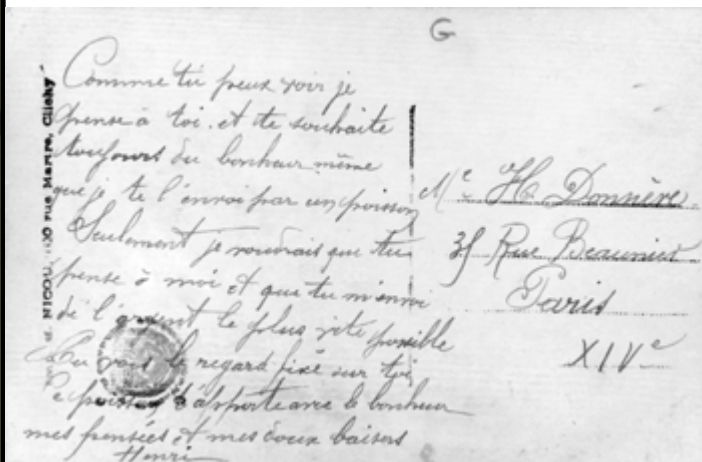 G
Comme tu peux voir je
pense à toi. et te souhaite
toujours du bonheur même
que je te l'envoi par un poisson
Seulement je voudrais que tu
pense à moi et que tu m'envoi
de l'argent le plus vite possible
Tu vois le regard fixé sur toi,
Ce poisson t'apporte avec le bonheur
mes pensées et mes doux baisers
Henri
Me H. Donnère
Rue Beaunier
Paris
XIVe
NICOL, rue Martre, Clichy